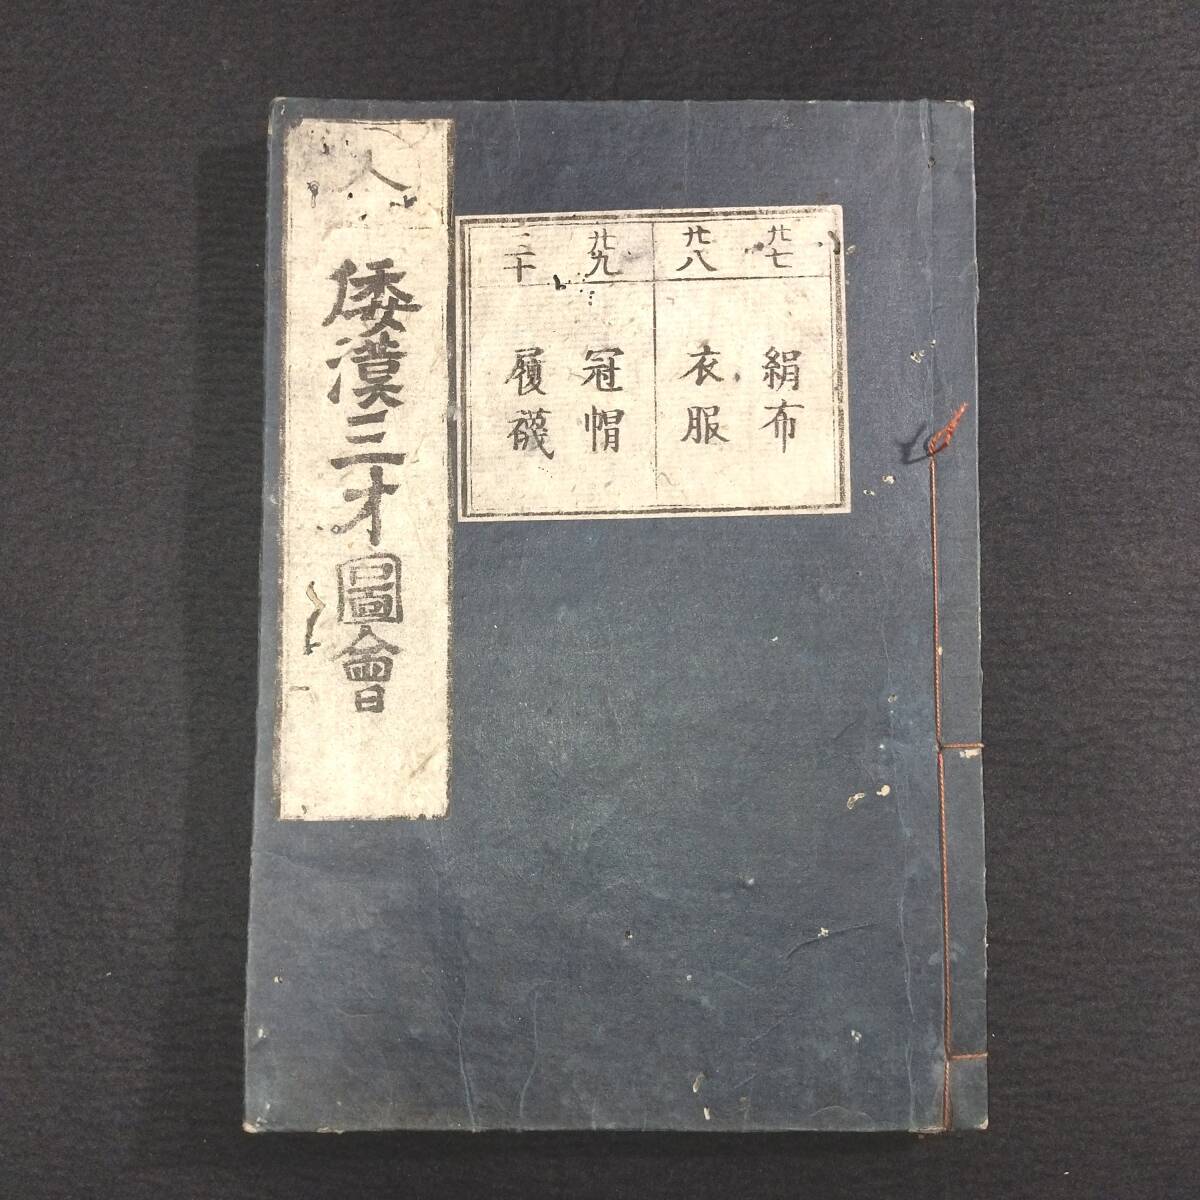 廿七 絹布
廿八 衣服
廿九 冠帽
三十 履襪
人
倭漢三才圖會